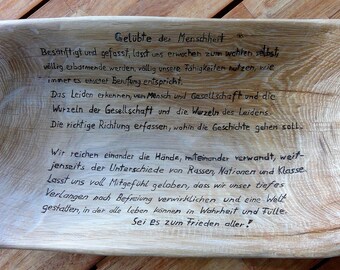 Gelübte der Menschheit
Besänftigt und gefasst, lasst uns erwachen zum wahren selbst
völlig erbarmende werden, völlig unsere Fähigkeiten nutzen, wie
immer es unserer Berufung entspricht.
Das Leiden erkennen, von Mensch und Gesellschaft und die
Wurzeln der Gesellschaft und die Wurzeln des Leidens.
Die richtige Richtung erfassen, wohin die Geschichte gehen soll.
Wir reichen einander die Hände, miteinander verwandt, weit-
jenseits der Unterschiede von Rassen, Nationen und Klasse.
Lasst uns voll Mitgefühl geloben, dass wir unser tiefes
Verlangen nach Befreiung verwirklichen und eine Welt
gestalten, in der alle leben können in Wahrheit und Fülle.
Sei es zum Frieden aller!